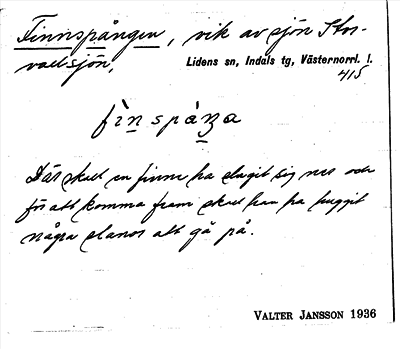 Finnspången, vik av sjön Stor-
vadsjön,
Lidens sn, Indals tg, Västernorrl. l.
415
Där skall en finne ha slagit sig ner och
för att komma fram skall han ha huggit
några slanor att gå på.
VALTER JANSSON 1936